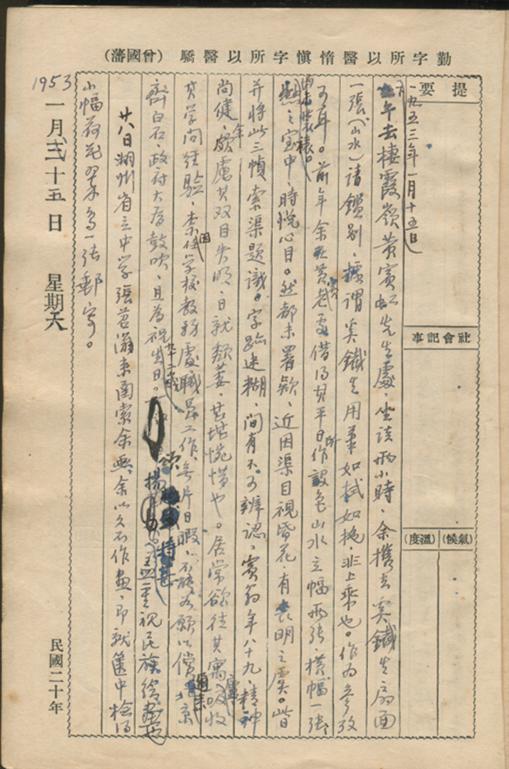 勤字所以醫惰慎字所以醫驕（曾國藩）
提要
社會記事
（氣候）
（溫度）
一九五三年一月十五日
下午去棲霞嶺黃賓虹先生處，坐談兩小時，余攜去吳鐵生扇面
一張（山水）請鑑別，據謂吳鐵生用筆如拭如抱，非上乘也。作為參攷
可耳。前年余在黃老處借得其平日所作設色山水立幅兩張，橫幅一張
懸之室中，時悅心目。然都未署欵，近因渠目視昏花，有失明之虞。皆
并將此三幀索渠題識。字跡迷糊，間有不可辨認，賓翁年八十九，精神
尚健，處其双目失明，日就頹萎，甚堪惋惜也。居常欲往其寓吸收
其学问經驗，因學校教務處職員工作，每片日暇，不能如願以償。北京
齊白石，政府大為鼓吹，且為祝生日。重視民族繪畫也
廿八日湖州省三中学張若瀛來函索余画，余以久不作画，即就篋中檢得
小幅荷花翠鳥一張郵寄。
1953
一月二十五日 星期
民國二十年